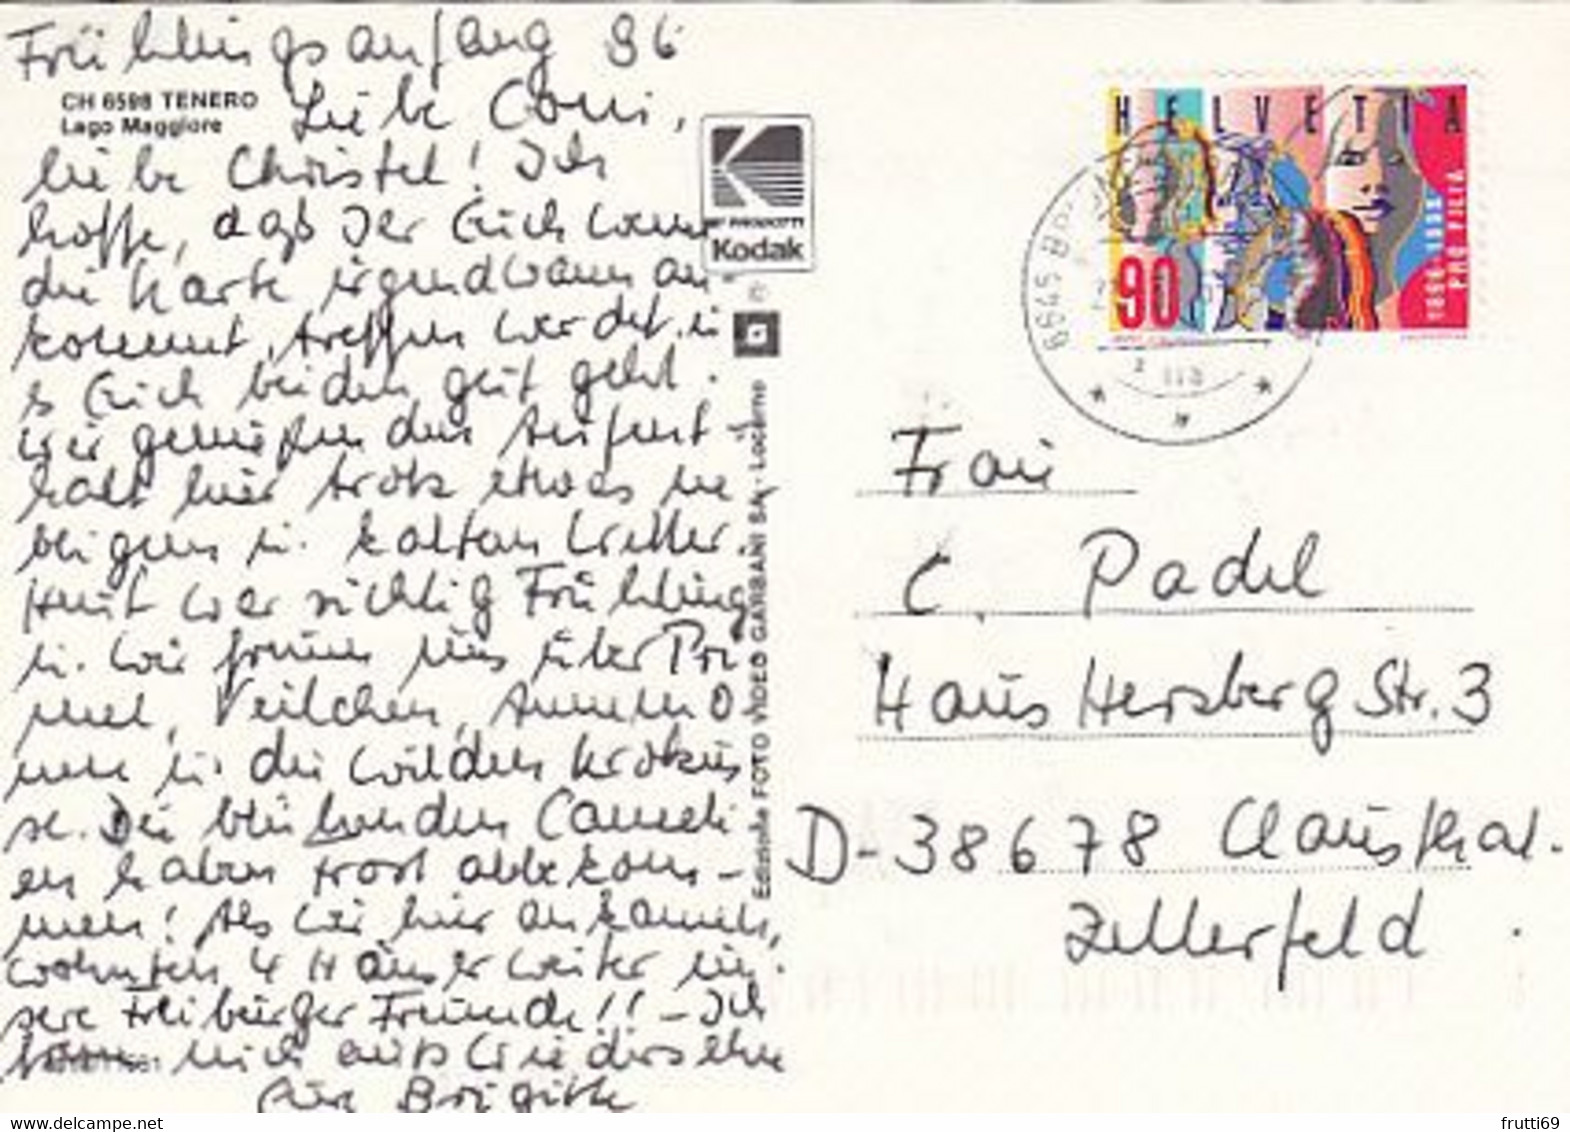 Frühlingsanfang 96
CH 6598 TENERO
Lago Maggiore
Liebe Coni,
liebe Christel! Ich
hoffe, daß Ihr Euch wenn
die Karte irgendwann an
kommt, treffen werdet. u
s Euch beiden gut geht.
Wir genießen den Aufent-
halt hier trotz etwas ne-
bligem u. kaltem Wetter.
Heut war richtig Frühling
u. wir freuen uns über Pri
meln, Veilchen, Anemo
nen u. die wilden Krokus
se. Die blühenden Cameli
en haben Frost abbekom-
men! Als wir hier ankamen,
wohnten 4 Häuser weiter un-
sere Freiburger Freunde!! - Ich
mich aufs Wiedersehn
Eure Brigitte
MF PRODOTTI
Kodak
Edizioni FOTO VIDEO GARBANI SA - Locarno
HELVETIA
90
1896-1996
PRO FILIA
6645 BR
Frau
C. Padel
Haus Herzberg Str. 3
D-38678 Clausthal-
Zellerfeld
frutti69